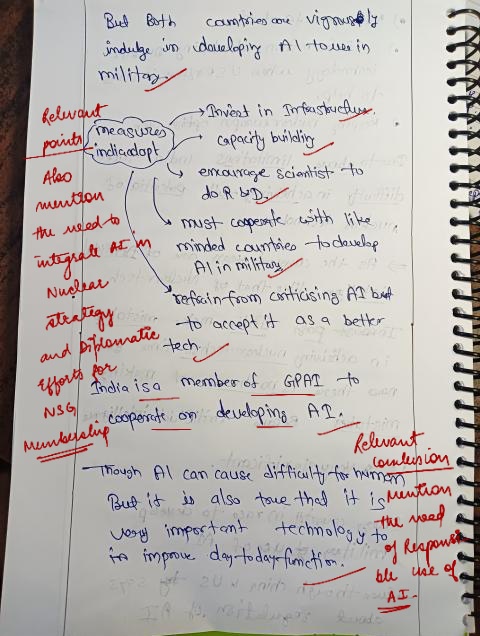 But Both countries are vigrously
indulge in developing AI to use in
military.
Relevant
points
Also
mention
the need to
integrate AI in
Nuclear
strategy
and Diplomatic
Efforts for
NSG
Membership
measures
india adopt
→ Invest in Infrastructure.
capacity building
encourage scientist to
do R & D.
must cooperate with like
minded countries to develop
AI in military
refrain from criticising AI but
to accept it as a better
tech
India is a member of GPAI to
cooperate on developing AI.
Though AI can cause difficulty for human
But it is also true that it is
very important technology to
improve day-to-day function.
Relevant
conclusion
mention
the need
of Responsi
ble use of
AI.